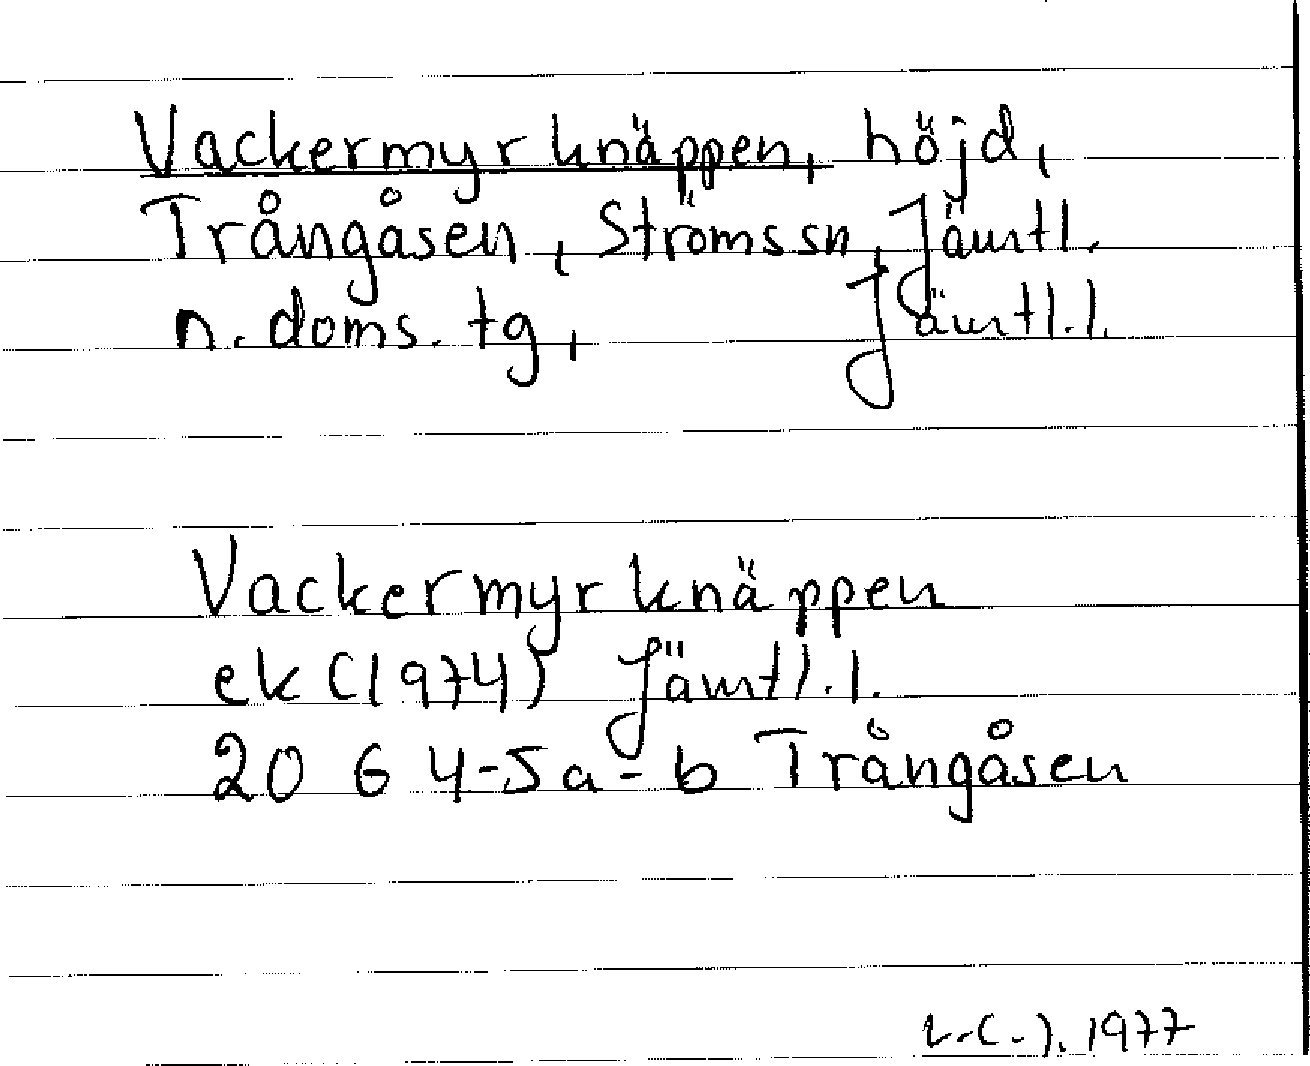 Vackermyrknäppen, höjd,
Trångåsen, Ströms sn, Jämtl.
n. doms. tg, Jämtl. l.
Vackermyrknäppen
ek (1974) Jämtl. l.
20 G 4-5a-b Trångåsen
1977